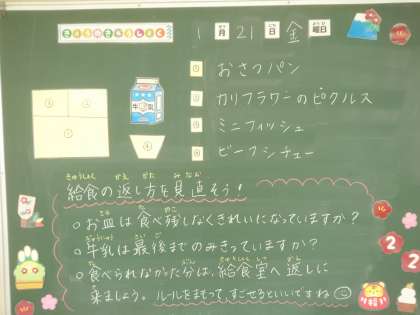 きょうのきゅうしょく
1月21日金曜日
① おさつパン
② カリフラワーのピクルス
③ ミニフィッシュ
④ ビーフシチュー
牛乳
給食の返し方を見直そう!
○お皿は食べ残しなくきれいになっていますか?
○牛乳は最後までのみきっていますか?
○食べられなかった分は、給食室へ返しに
来ましょう。ルールをまもって、すごせるといいですね
2
2